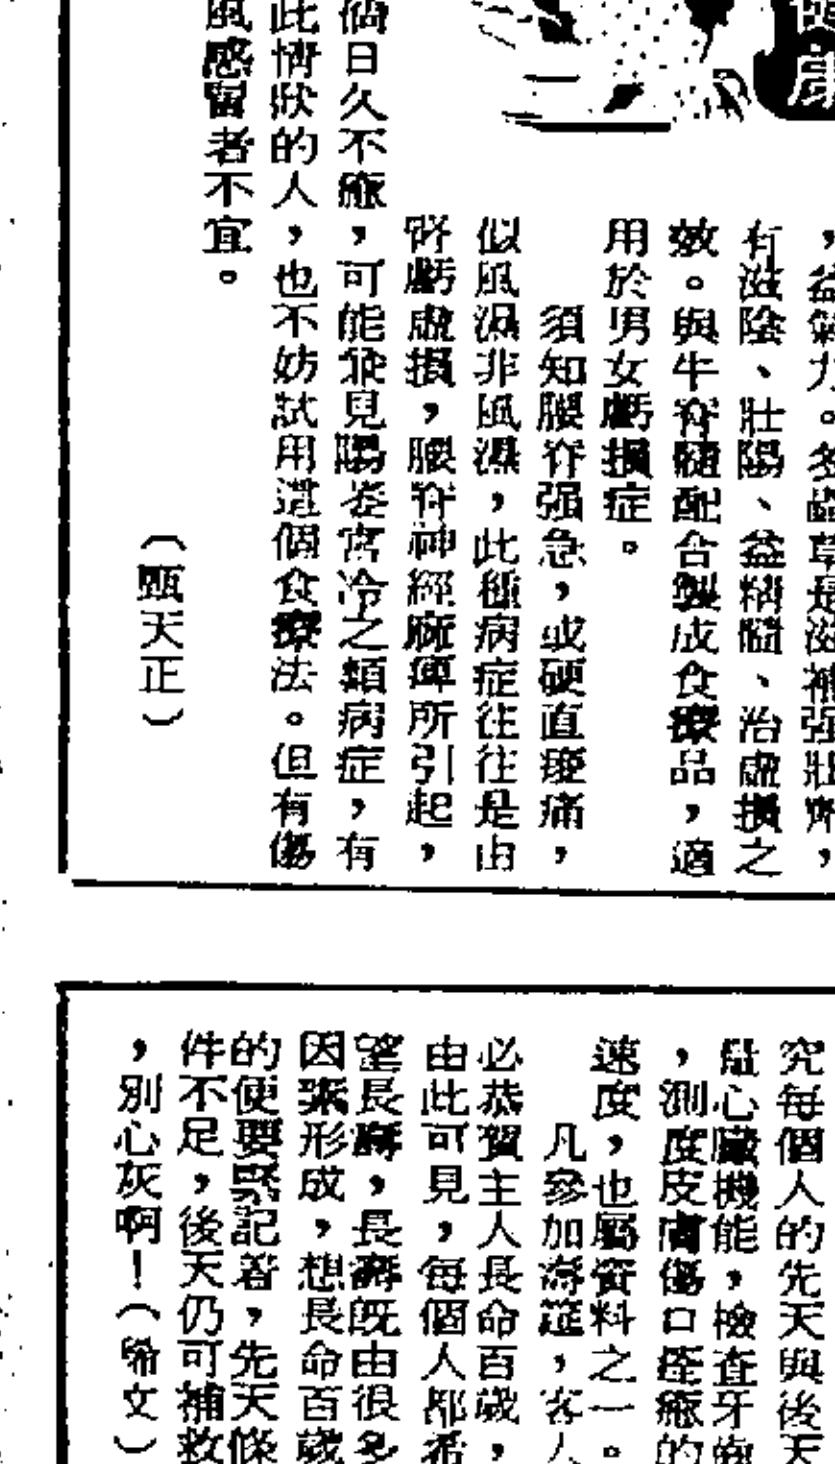 健康
，益氣力。冬蟲草是滋補强壯劑，
有滋陰、壯陽、益精髓、治虛損之
效。與牛脊髓配合製成食療品，適
用於男女虧損症。
須知腰脊强急，或硬直痠痛，
似風濕非風濕，此種病症往往是由
腎虧虛損，腰脊神經麻痺所引起，
倘日久不癒，可能衍見陽萎宮冷之類病症，有
此情狀的人，也不妨試用這個食療法。但有傷
風感冒者不宜。
（甄天正）
究每個人的先天與後天
量心臟機能，檢查牙
，測度皮膚傷口痊癒的
速度，也屬資料之一。
凡參加壽筵，客人
必恭賀主人長命百歲，
由此可見，每個人都希
望長壽，長壽既由很多
因素形成，想長命百歲
的便要緊記着，先天條
件不足，後天仍可補救
，別心灰啊！（希文）